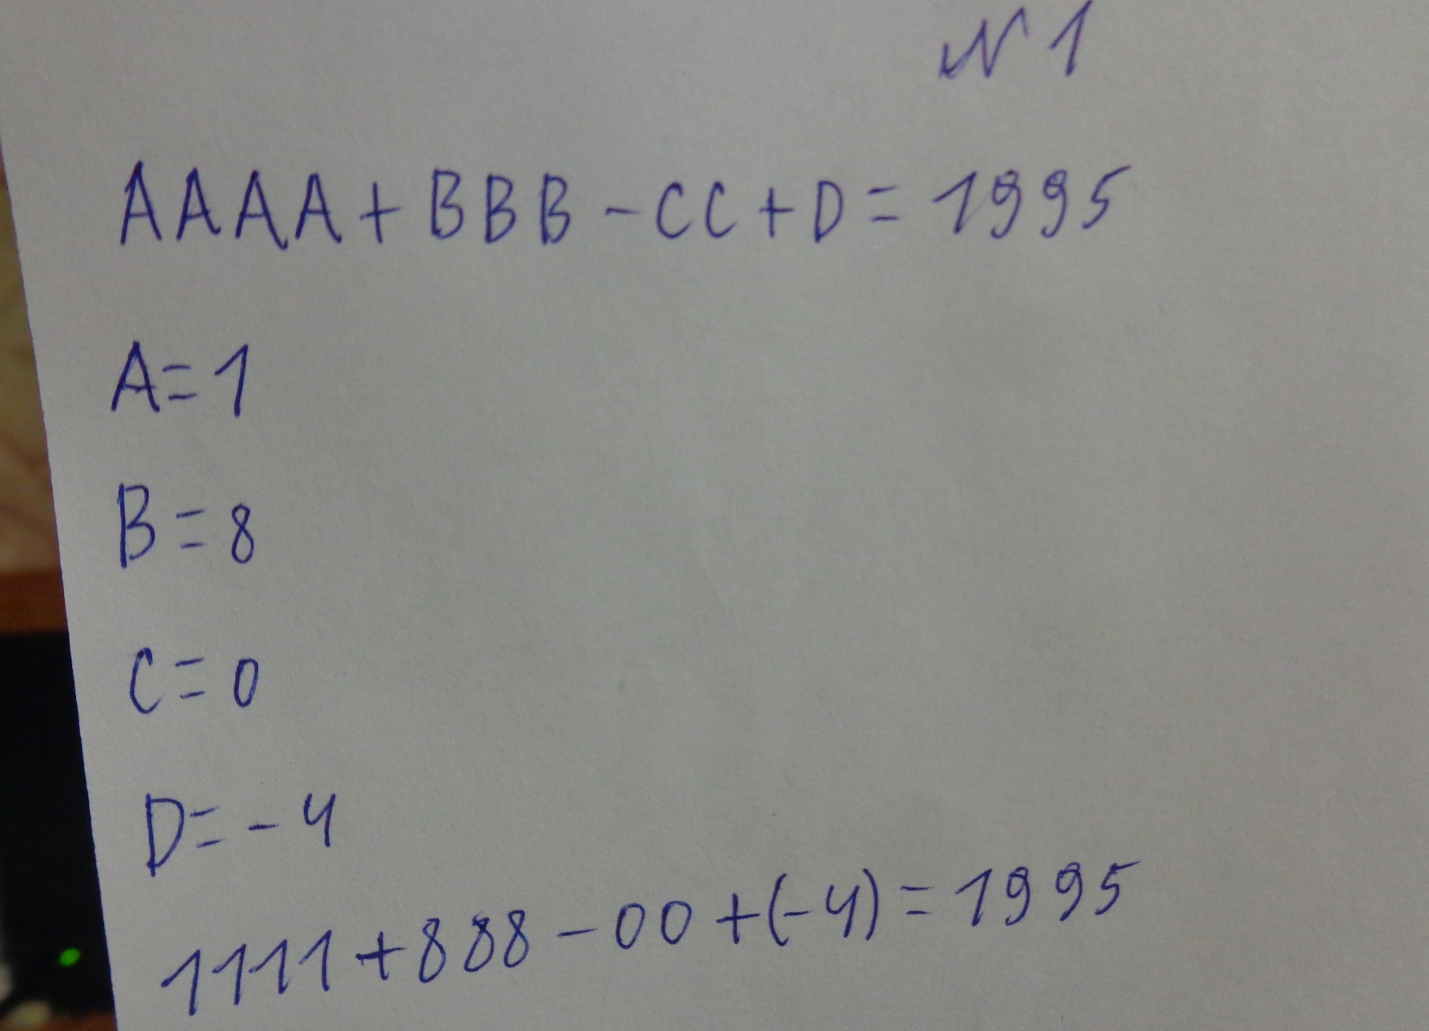 № 1
AAAA + BBB - CC + D = 1995
A = 1
B = 8
C = 0
D = - 4
1111 + 888 - 00 + (-4) = 1995